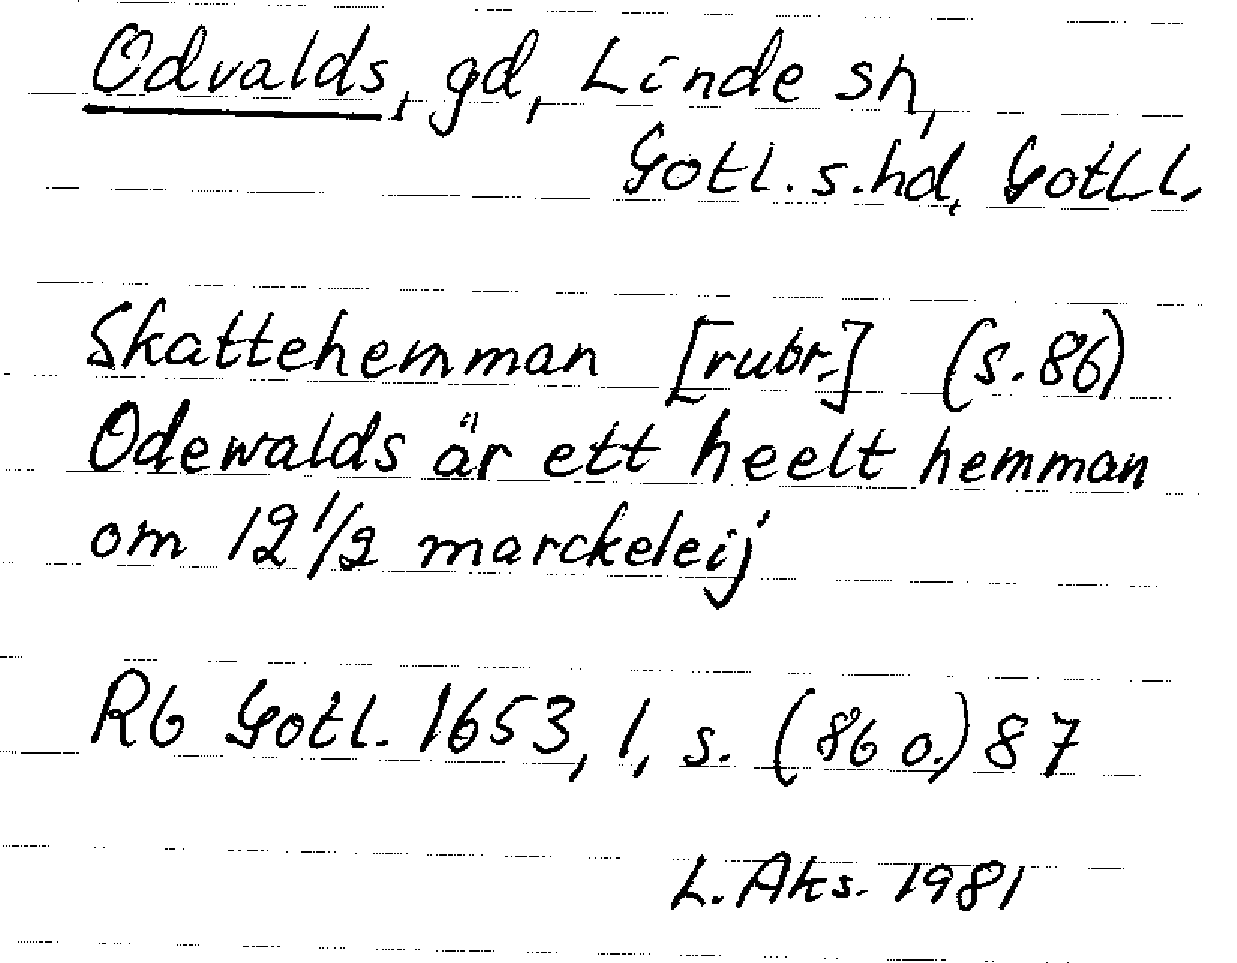 Odvalds, gd, Linde sn,
Gotl. s. hd, Gotl. l.
Skattehemman [rubr.] (s. 86)
Odewalds är ett heelt hemman
om 12 1/2 marckeleij
Rb Gotl. 1653, 1, s. (86 o.) 87
L. Aks. 1981